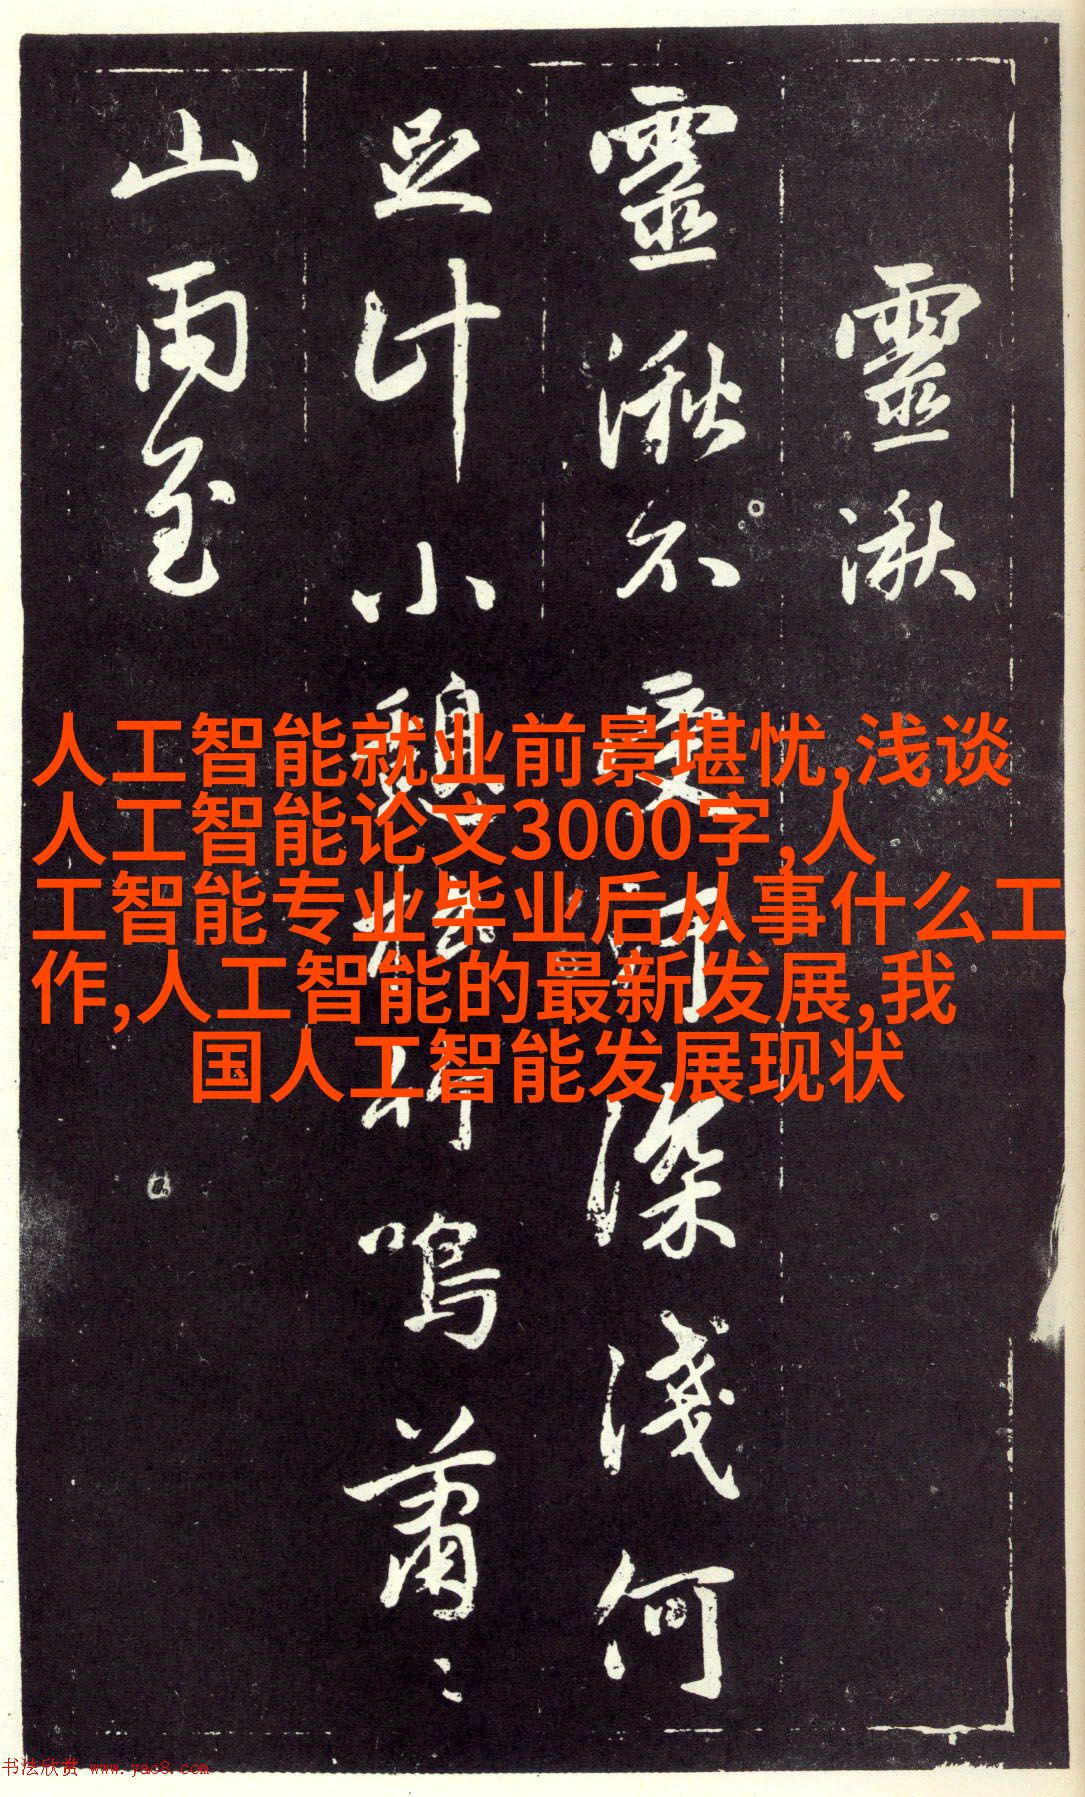 靈湫
靈湫不深淺何
足計小鳴蕭〻
山雨至
人工智能就业前景堪忧,浅谈
人工智能论文3000字,人
工智能专业毕业后从事什么工
作,人工智能的最新发展,我
国人工智能发展现状
书法欣赏 www.yac8.com